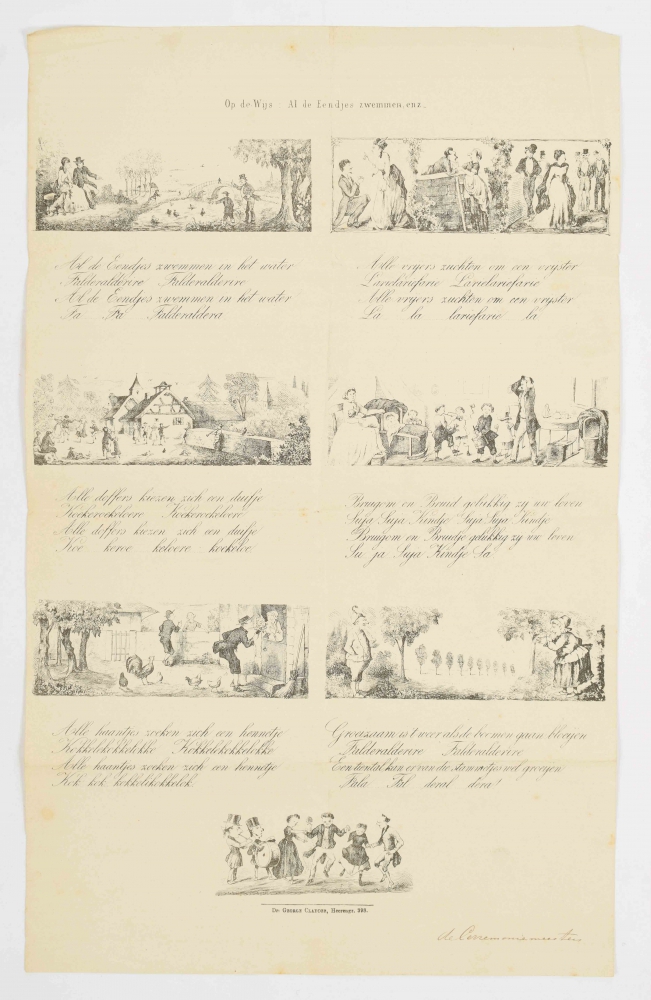 Op de Wijs Al de Eendjes zwemmen, enz.
Al de Eendjes zwemmen in het water
Falderalderire Falderalderire
Al de Eendjes zwemmen in het water
Fa Fa Falderaldera
Alle doffers kiezen zich een duifje
Koekeroekeloere Koekeroekeloere
Alle doffers kiezen zich een duifje
Koe keroe keloere koekeloe
Alle haantjes zoeken zich een hennetje
Kokkelikokkelikke Kokkelikokkelokke
Alle haantjes zoeken zich een hennetje
Kok kok kokkelikokkelok
Alle vryers zuchten om een vryster
Larielariefarie Larielariefarie
Alle vryers zuchten om een vryster
La la lariefarie la
Bruigom en Bruid gelukkig zy uw leven
Suja Suja Kindje Suja Suja Kindje
Bruigom en Bruidje gelukkig zy uw leven
Su ja Suja Kindje Sa
Groeizaam is 't weer als de boomen gaan bloeyen
Falderalderire Falderalderire
Een tiental kan er van die stammetjes wel groeyen
Fala Fal deral dera!
De Geerle Clayton, Heereng. 393.
de Ceremoniemeesters